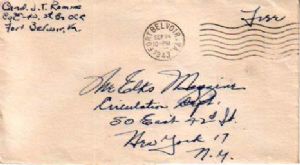 Cand. J. T. Romme
Fort Belvoir, Va
FORT BELVOIR, VA.
SEP
10 PM
1943
Free
The Elks Magazine
Circulation Dept.
50 East 42nd St.
New York 17
N.Y.